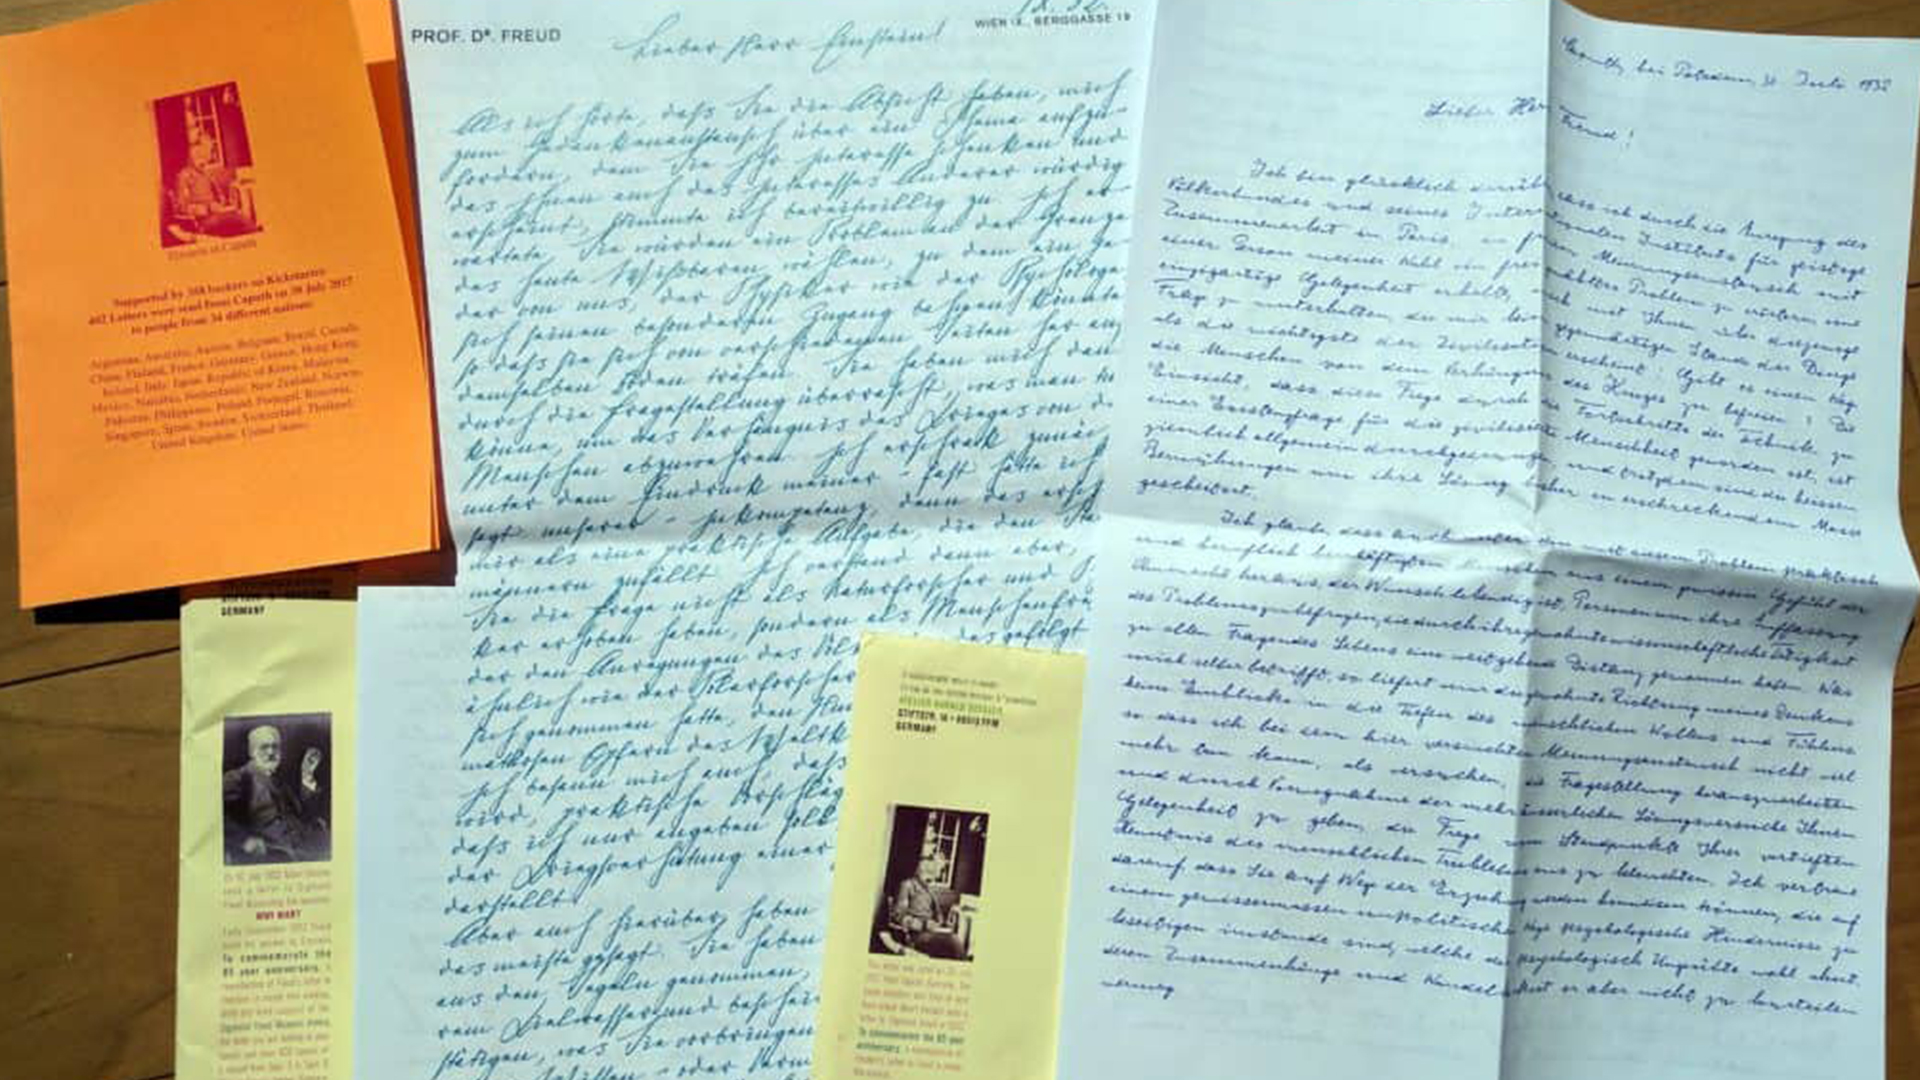 Einstein in Caputh
Supported by 388 backers on Kickstarter
402 Letters were send from Caputh on 30 July 2017
to people from 34 different nations:
Argentina, Australia, Austria, Belgium, Brazil, Canada,
China, Finland, France, Germany, Greece, Hong Kong,
Ireland, Italy, Japan, Republic of Korea, Malaysia,
Mexico, Namibia, Netherlands, New Zealand, Norway,
Pakistan, Philippines, Poland, Portugal, Romania,
Singapore, Spain, Sweden, Switzerland, Thailand,
United Kingdom, United States.
GERMANY
WHY WAR?
To commemorate the
85 year anniversary,
PROF. DR. FREUD
WIEN IX., BERGGASSE 19
Lieber Herr Einstein!
Als ich hörte, daß Sie die Absicht haben, mich
zum Gedankenaustausch über ein Thema aufzu-
fordern, dem Sie Ihr Interesse schenken und
das Ihnen auch des Interesses Anderer würdig
erscheint, stimmte ich bereitwillig zu. Ich er-
wartete, Sie würden ein Problem an der Grenze
des heute Wißbaren wählen, zu dem ein je-
der von uns, der Physiker wie der Psychologe
sich seinen besonderen Zugang bahnen könnte
so daß sie sich von verschiedenen Seiten her auf
demselben Boden träfen. Sie haben mich dann
durch die Fragestellung überrascht, was man tun
könne, um das Verhängnis des Krieges von d
Menschen abzuwehren. Ich erschrak zunäc
unter dem Eindruck meiner – fast hätte ich
gesagt: unserer – Inkompetenz, denn das ersch
mir als eine praktische Aufgabe, die den Sta
männern zufällt. Ich verstand dann aber,
Sie die Frage nicht als Naturforscher und P
ker erhoben haben, sondern als Menschenfreu
der den Anregungen des Völ
das gefolgt
ähnlich wie der Polarforscher
sich genommen hatte, den Hun
matlosen Opfern des Weltk
Ich besann mich auch, daß
wird, praktische Vorschläg
daß ich nur angeben soll
der Kriegsverhütung einer
darstellt.
Aber auch hierüber haben
das meiste gesagt. Sie haben
aus den Segeln genommen,
rem Kielwasser und beschei
stätigen, was Sie vorbringen
STIFTSTR. 14 • 60313 FFM
GERMANY
To commemorate the 85 year
anniversary,
Caputh bei Potsdam, 30. Juli 1932
Lieber Herr Freud!
Ich bin glücklich darüber, dass ich durch die Anregung des
Völkerbundes und seines Internationalen Instituts für geistige
Zusammenarbeit in Paris, in freiem Meinungsaustausch mit
einer Person meiner Wahl ein frei gewähltes Problem zu erörtern, eine
einzigartige Gelegenheit erhalte, mich mit Ihnen über diejenige
Frage zu unterhalten, die mir beim gegenwärtigen Stande der Dinge
als die wichtigste der Zivilisation erscheint: Gibt es einen Weg,
die Menschen von dem Verhängnis des Krieges zu befreien? Die
Einsicht, dass diese Frage durch die Fortschritte der Technik zu
einer Existenzfrage für die zivilisierte Menschheit geworden ist, ist
ziemlich allgemein durchgedrungen, und trotzdem sind die heissen
Bemühungen um ihre Lösung bisher in erschreckendem Masse
gescheitert.
Ich glaube, dass auch unter den mit diesem Problem praktisch
und beruflich beschäftigten Menschen aus einem gewissen Gefühl der
Ohnmacht heraus, der Wunsch lebendig ist, Personen um ihre Auffassung
des Problems zu befragen, die durch ihre gewohnte wissenschaftliche Tätigkeit
zu allen Fragen des Lebens eine weitgehende Distanz gewonnen haben. Was
mich selber betrifft, so liefert mir die gewohnte Richtung meines Denkens
keine Einblicke in die Tiefen des menschlichen Wollens und Fühlens
so dass ich bei dem hier versuchten Meinungsaustausch nicht viel
mehr tun kann, als versuchen, die Fragestellung herauszuarbeiten
und durch Vorwegnahme der mehr äusserlichen Lösungsversuche Ihnen
Gelegenheit zu geben, die Frage vom Standpunkte Ihrer vertieften
Kenntnis des menschlichen Trieblebens aus zu beleuchten. Ich vertraue
darauf, dass Sie auf Wege der Erziehung werden hinweisen können, die auf
einem gewissermassen unpolitischen Wege psychologische Hindernisse zu
beseitigen imstande sind, welche der psychologisch Ungeübte wohl ahnt,
deren Zusammenhänge und Wandelbarkeit er aber nicht zu beurteilen
vermag.